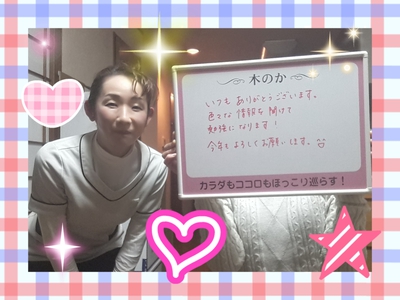 木のか
いつも ありがとうございます。
色々な 情報を 聞けて
勉強になります！
今年もよろしくお願いします。
カラダもココロもほっこり巡らす！